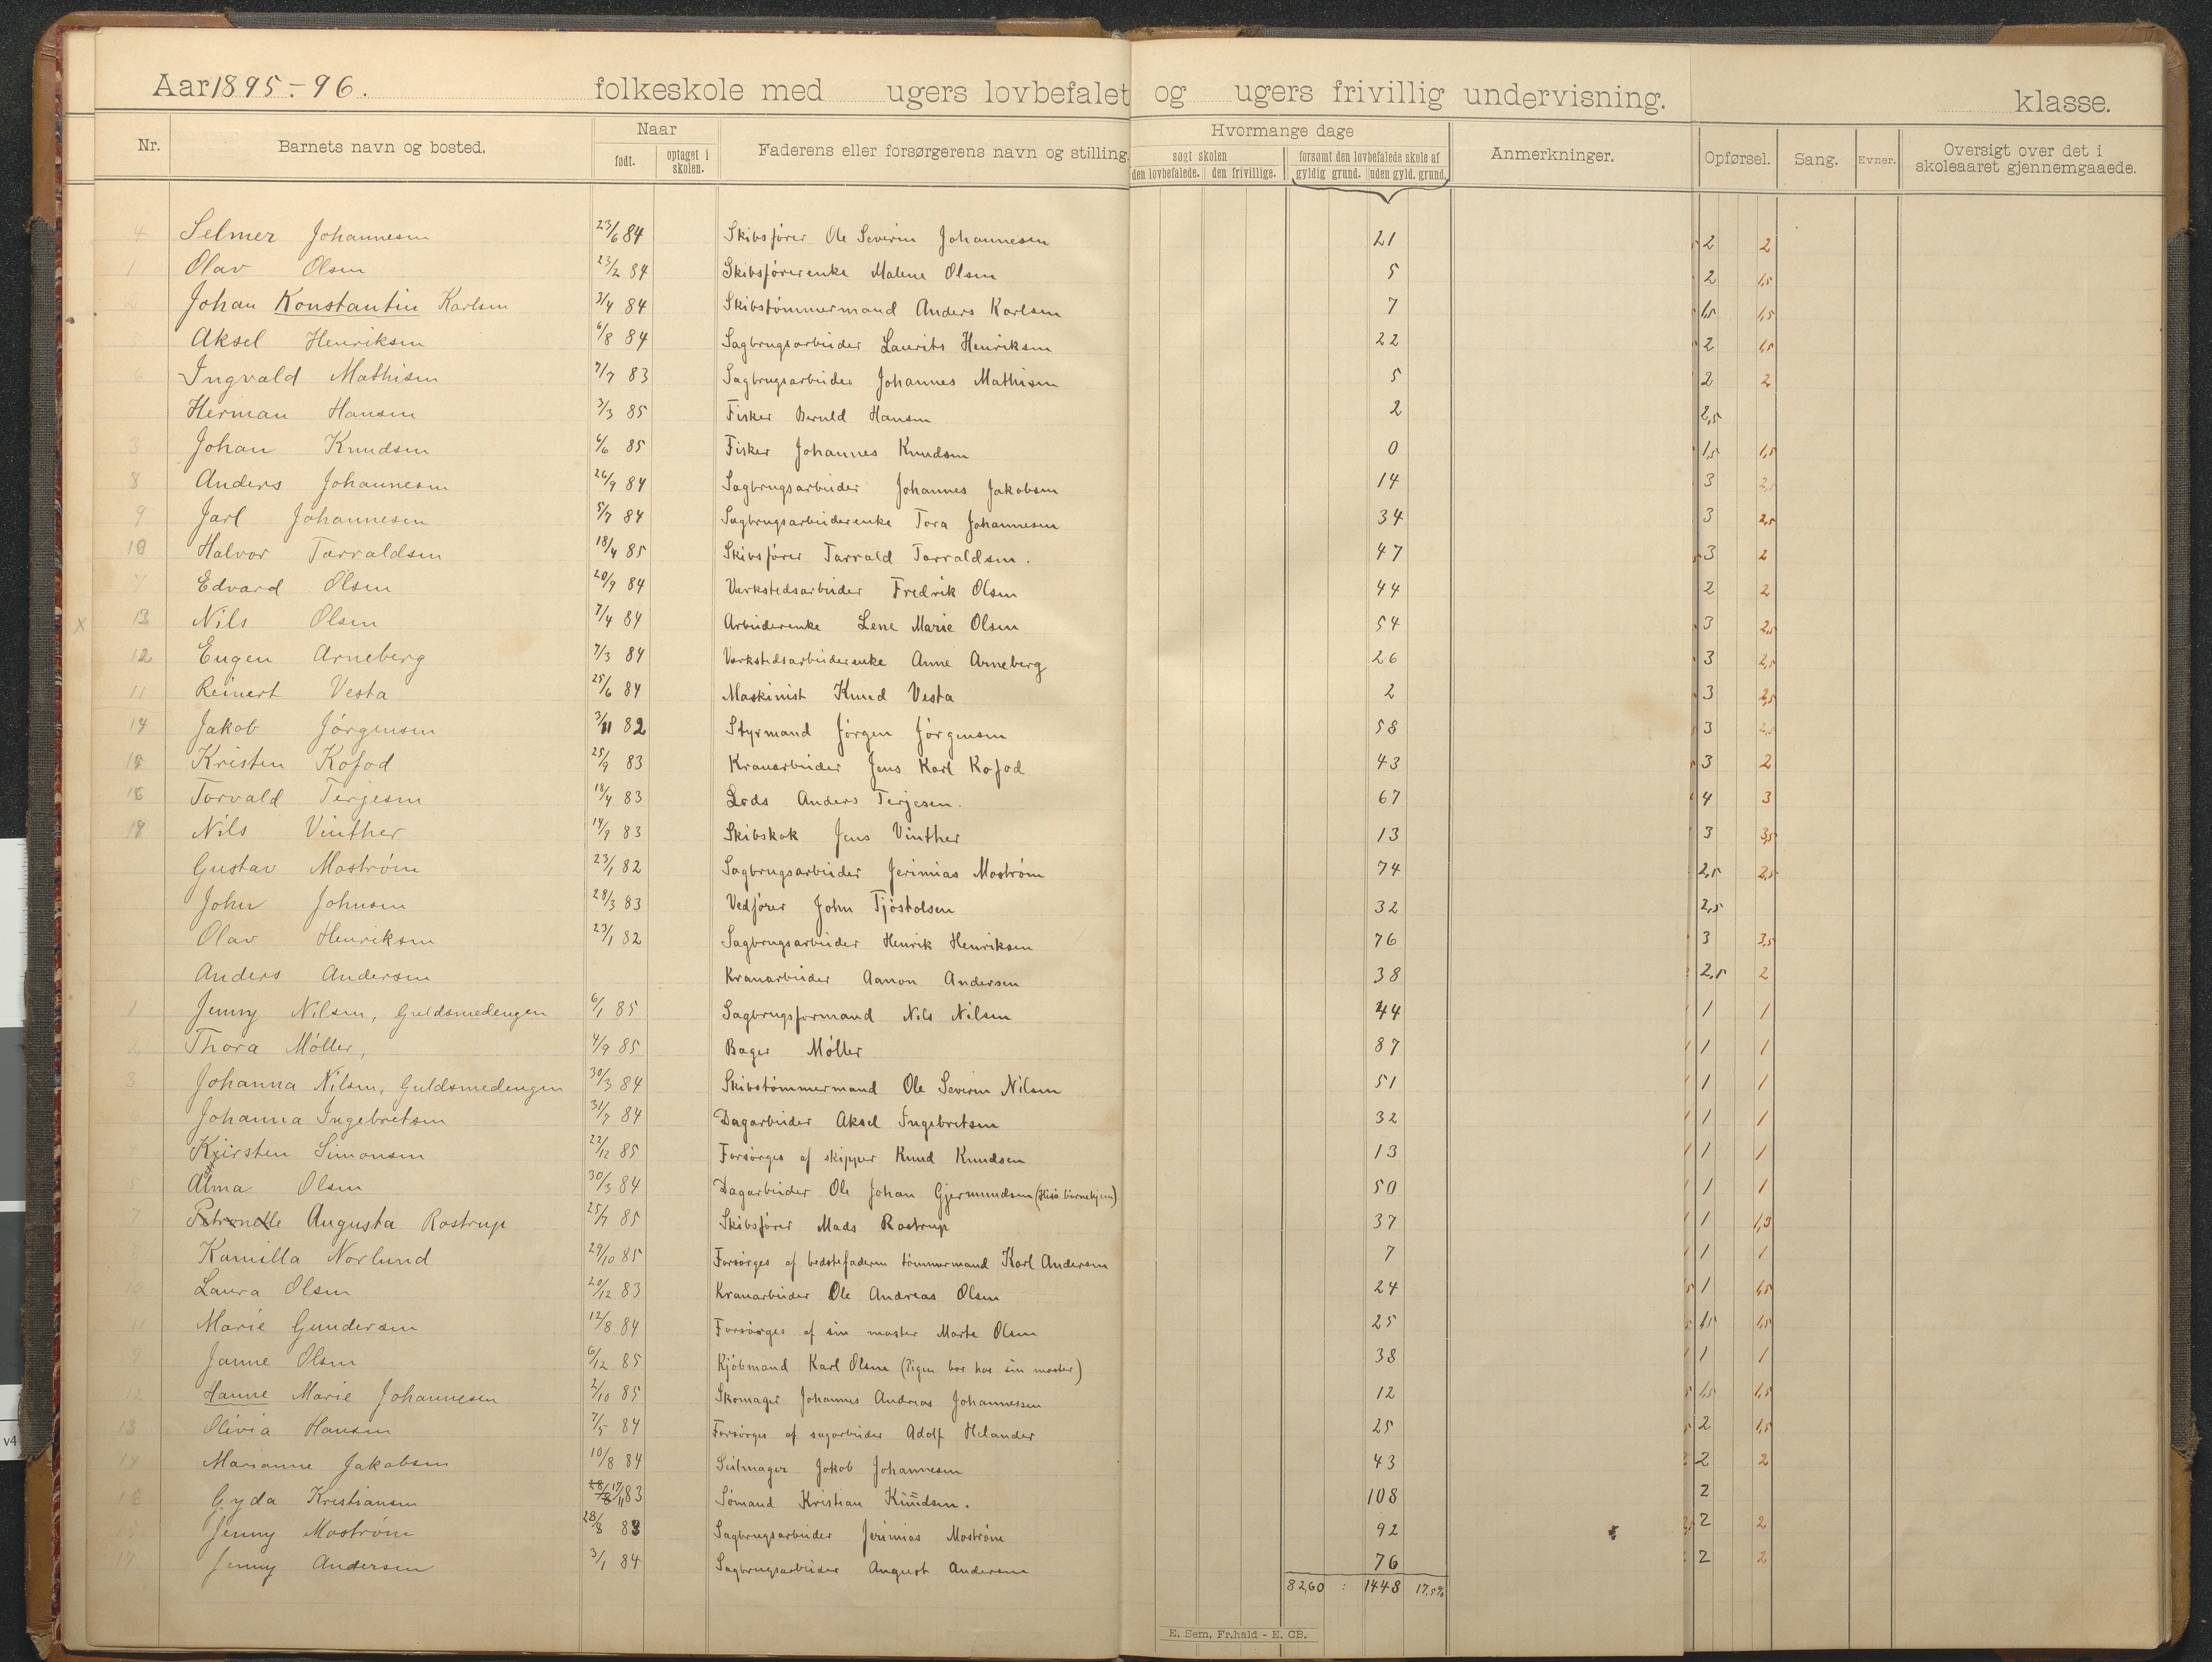 Aar 1895-96. folkeskole med ugers lovbefalet og ugers frivillig undervisning. klasse.
Nr. Barnets navn og bosted. Naar født. optaget i skolen. Faderens eller forsørgerens navn og stilling. Hvormange dage søgt skolen den lovbefalede. den frivillige. forsømt den lovbefalede skole af gyldig grund. uden gyld. grund. Anmerkninger. Opførsel. Sang. Evner. Oversigt over det i skoleaaret gjennemgaaede.
4 Selmer Johannesen 23/6 84 Skibsfører Ole Severin Johannesen 21 2 2
1 Olav Olsen 23/2 84 Skibsførerenke Malene Olsen 5 2 1,5
2 Johan Konstantin Karlsen 3/4 84 Skibstømmermand Anders Karlsen 7 1,5 1,5
Aksel Henriksen 6/8 84 Sagbrugsarbeider Laurits Henriksen 22 2 1,5
6 Ingvald Mathisen 7/7 83 Sagbrugsarbeider Johannes Mathisen 5 2 2
Herman Hansen 3/3 85 Fisker Hansen 2 2,5
3 Johan Knudsen 6/6 85 Fisker Johannes Knudsen 0 1,5 1,5
8 Anders Johannesen 26/9 84 Sagbrugsarbeider Johannes Jakobsen 14 3 2,5
9 Jarl Johannesen 5/7 84 Sagbrugsarbeiderenke Tora Johannesen 34 3 2,5
10 Halvor Tarraldsen 18/4 85 Skibsfører Tarrald Tarraldsen. 47 3 2
7 Edvard Olsen 20/9 84 Værkstedsarbeider Fredrik Olsen 44 2 2
x 13 Nils Olsen 7/4 84 Arbeiderenke Lene Marie Olsen 54 3 2,5
12 Eugen Arneberg 7/3 84 Værkstedsarbeiderenke Anne Arneberg 26 3 2,5
11 Reinert Vesta 25/6 84 Maskinist Knud Vesta 2 3 2,5
14 Jakob Jørgensen 3/11 82 Styrmand Jørgen Jørgensen 58 3 2,5
15 Kristen Kofod 25/9 83 Kranarbeider Jens Karl Kofod 43 3 2
16 Torvald Terjesen 18/4 83 Lods Anders Terjesen. 67 4 3
Nils Vinther 14/9 83 Skibskok Jens Vinther 13 3 3,5
Gustav Mostrøm 23/1 82 Sagbrugsarbeider Jerimias Mostrøm 74 2,5 2,5
John Johnsen 28/3 83 Vedfører John Tjøstolsen 32 2,5
Olav Henriksen 23/1 82 Sagbrugsarbeider Henrik Henriksen 76 3 3,5
Anders Andersen Kranarbeider Aanon Andersen 38 2,5 2
1 Jenny Nilsen, Guldsmedengen 6/1 85 Sagbrugsformand Nils Nilsen 44 1 1
2 Thora Møller, 4/9 85 Bager Møller 87 1 1
3 Johanna Nilsen, Guldsmedengen 30/3 84 Skibstømmermand Ole Severin Nilsen 51 1 1
6 Johanna Ingebretsen 31/7 84 Dagarbeider Aksel Ingebretsen 32 1 1
4 Kirsten Simonsen 22/12 85 Forsørges af skipper Knud Knudsen 13 1 1
5 Alma Olsen 30/3 84 Dagarbeider Ole Johan Gjermundsen (Hisø børnehjem) 50 1 1
7 Petronelle Augusta Rostrup 25/7 85 Skibsfører Mads Rostrup 37 1 1,5
8 Kamilla Norlund 29/10 85 Forsørges af bedstefaderen tømmermand Karl Andersen 7 1 1
10 Laura Olsen 20/12 83 Kranarbeider Ole Andreas Olsen 24 1 1,5
11 Marie Gundersen 12/8 84 Forsørges af sin moster Marte Olsen 25 1,5 1,5
9 Janne Olsen 6/12 85 Kjøbmand Karl Olsen (Pigen bor hos sin moster) 38 1 1
12 Hanne Marie Johannesen 2/10 85 Skomager Johannes Andreas Johannessen 12 1,5 1,5
13 Olivia Hansen 7/5 84 Forsørges af sagarbeider Adolf Helander 25 2 1,5
14 Marianne Jakobsen 10/8 84 Seilmager Jakob Johannesen 43 2 2
16 Gyda Kristiansen 28/8 17/11 83 Sømand Kristian Knudsen. 108 2
15 Jenny Mostrøm 28/8 83 Sagbrugsarbeider Jerimias Mostrøm 92 2 2
17 Jenny Andersen 3/1 84 Sagbrugsarbeider August Andersen 76 2 2
8260 : 1448 17,5%
E. Sem, Fr.hald - E. CB.
v4